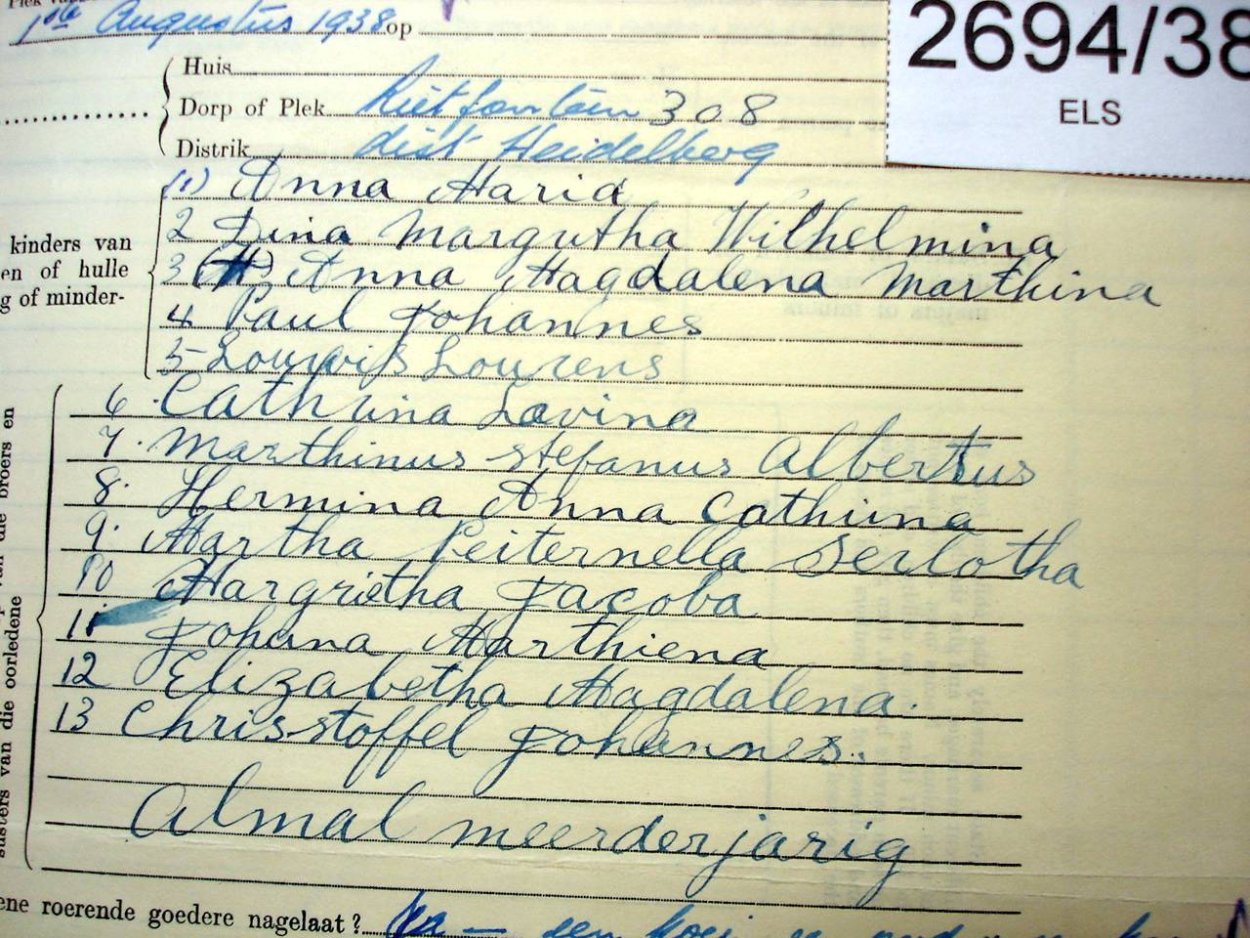 1ste Augustus 1938 op
2694/38
ELS
Huis
Dorp of Plek Rietfontein 308
Distrik dist Heidelberg
(1) Anna Maria
2 Dina Margretha Wilhelmina
kinders van
en of hulle
g of minder-
3 Anna Magdalena Marthina
4 Paul Johannes
5 Lourens
6 Cathrina Lavina
7. Marthinus Stefanus Albertus
8. Hermina Anna Cathrina
9. Martha Peiternella Serlotha
10 Margrietha Jacoba
11 Johana Marthiena
12 Elizabetha Magdalena.
13 Chrisstoffel Johannes.
Almal meerderjarig
susters van die oorledene
van die broers en
ene roerende goedere nagelaat? Ja — een koei